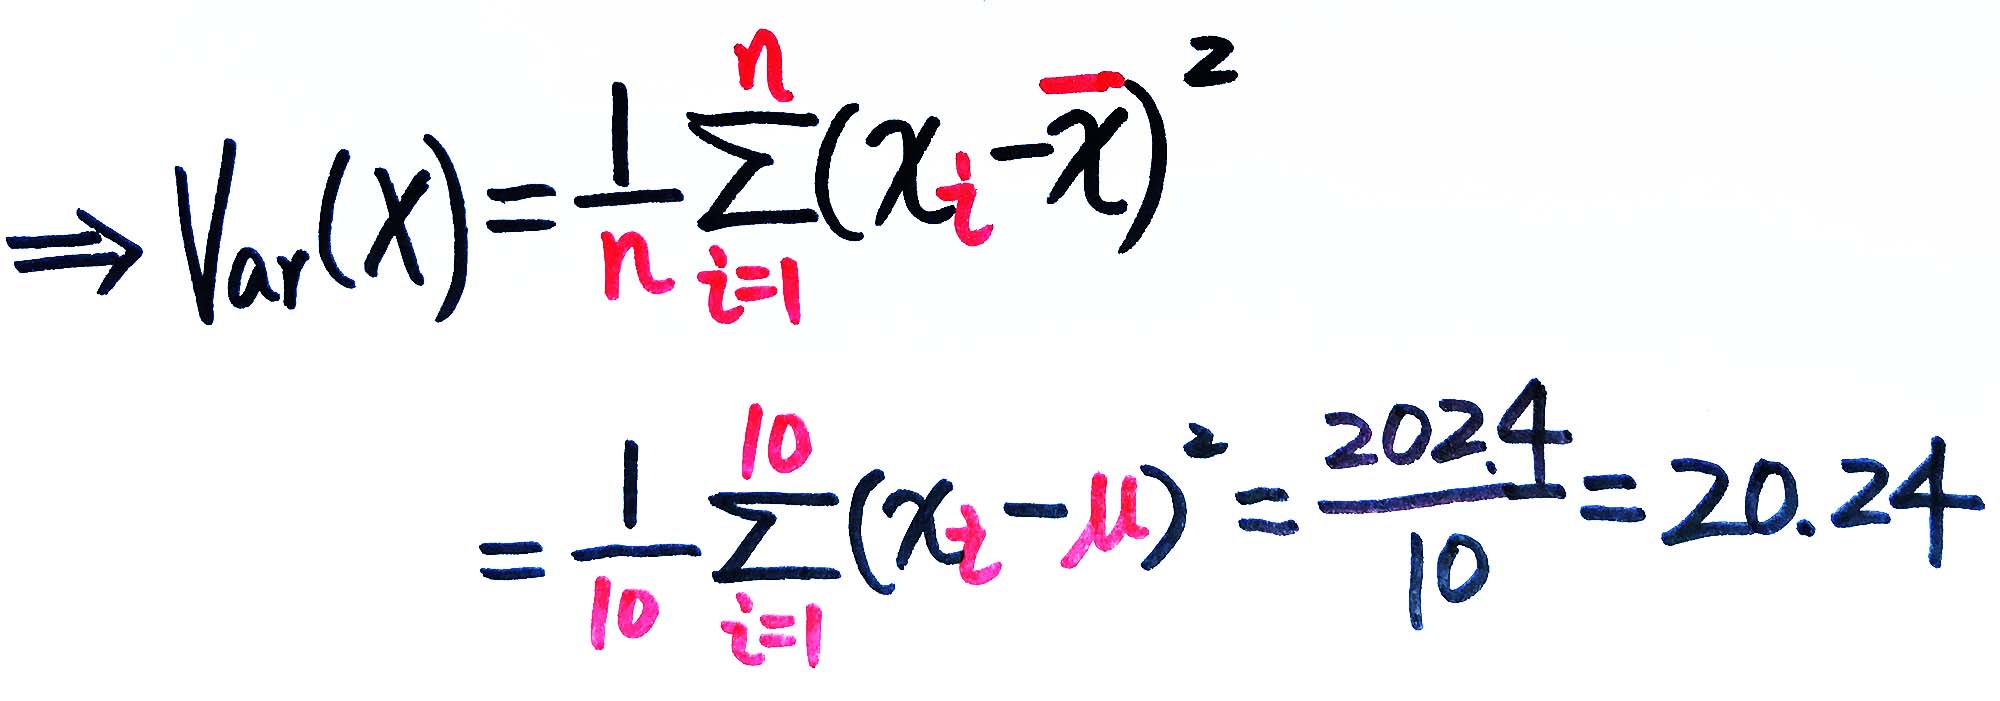 ⇒ Var(X) = \frac{1}{n} \sum_{i=1}^{n} (x_i - \overline{x})^2
= \frac{1}{10} \sum_{i=1}^{10} (x_i - μ)^2 = \frac{202.4}{10} = 20.24